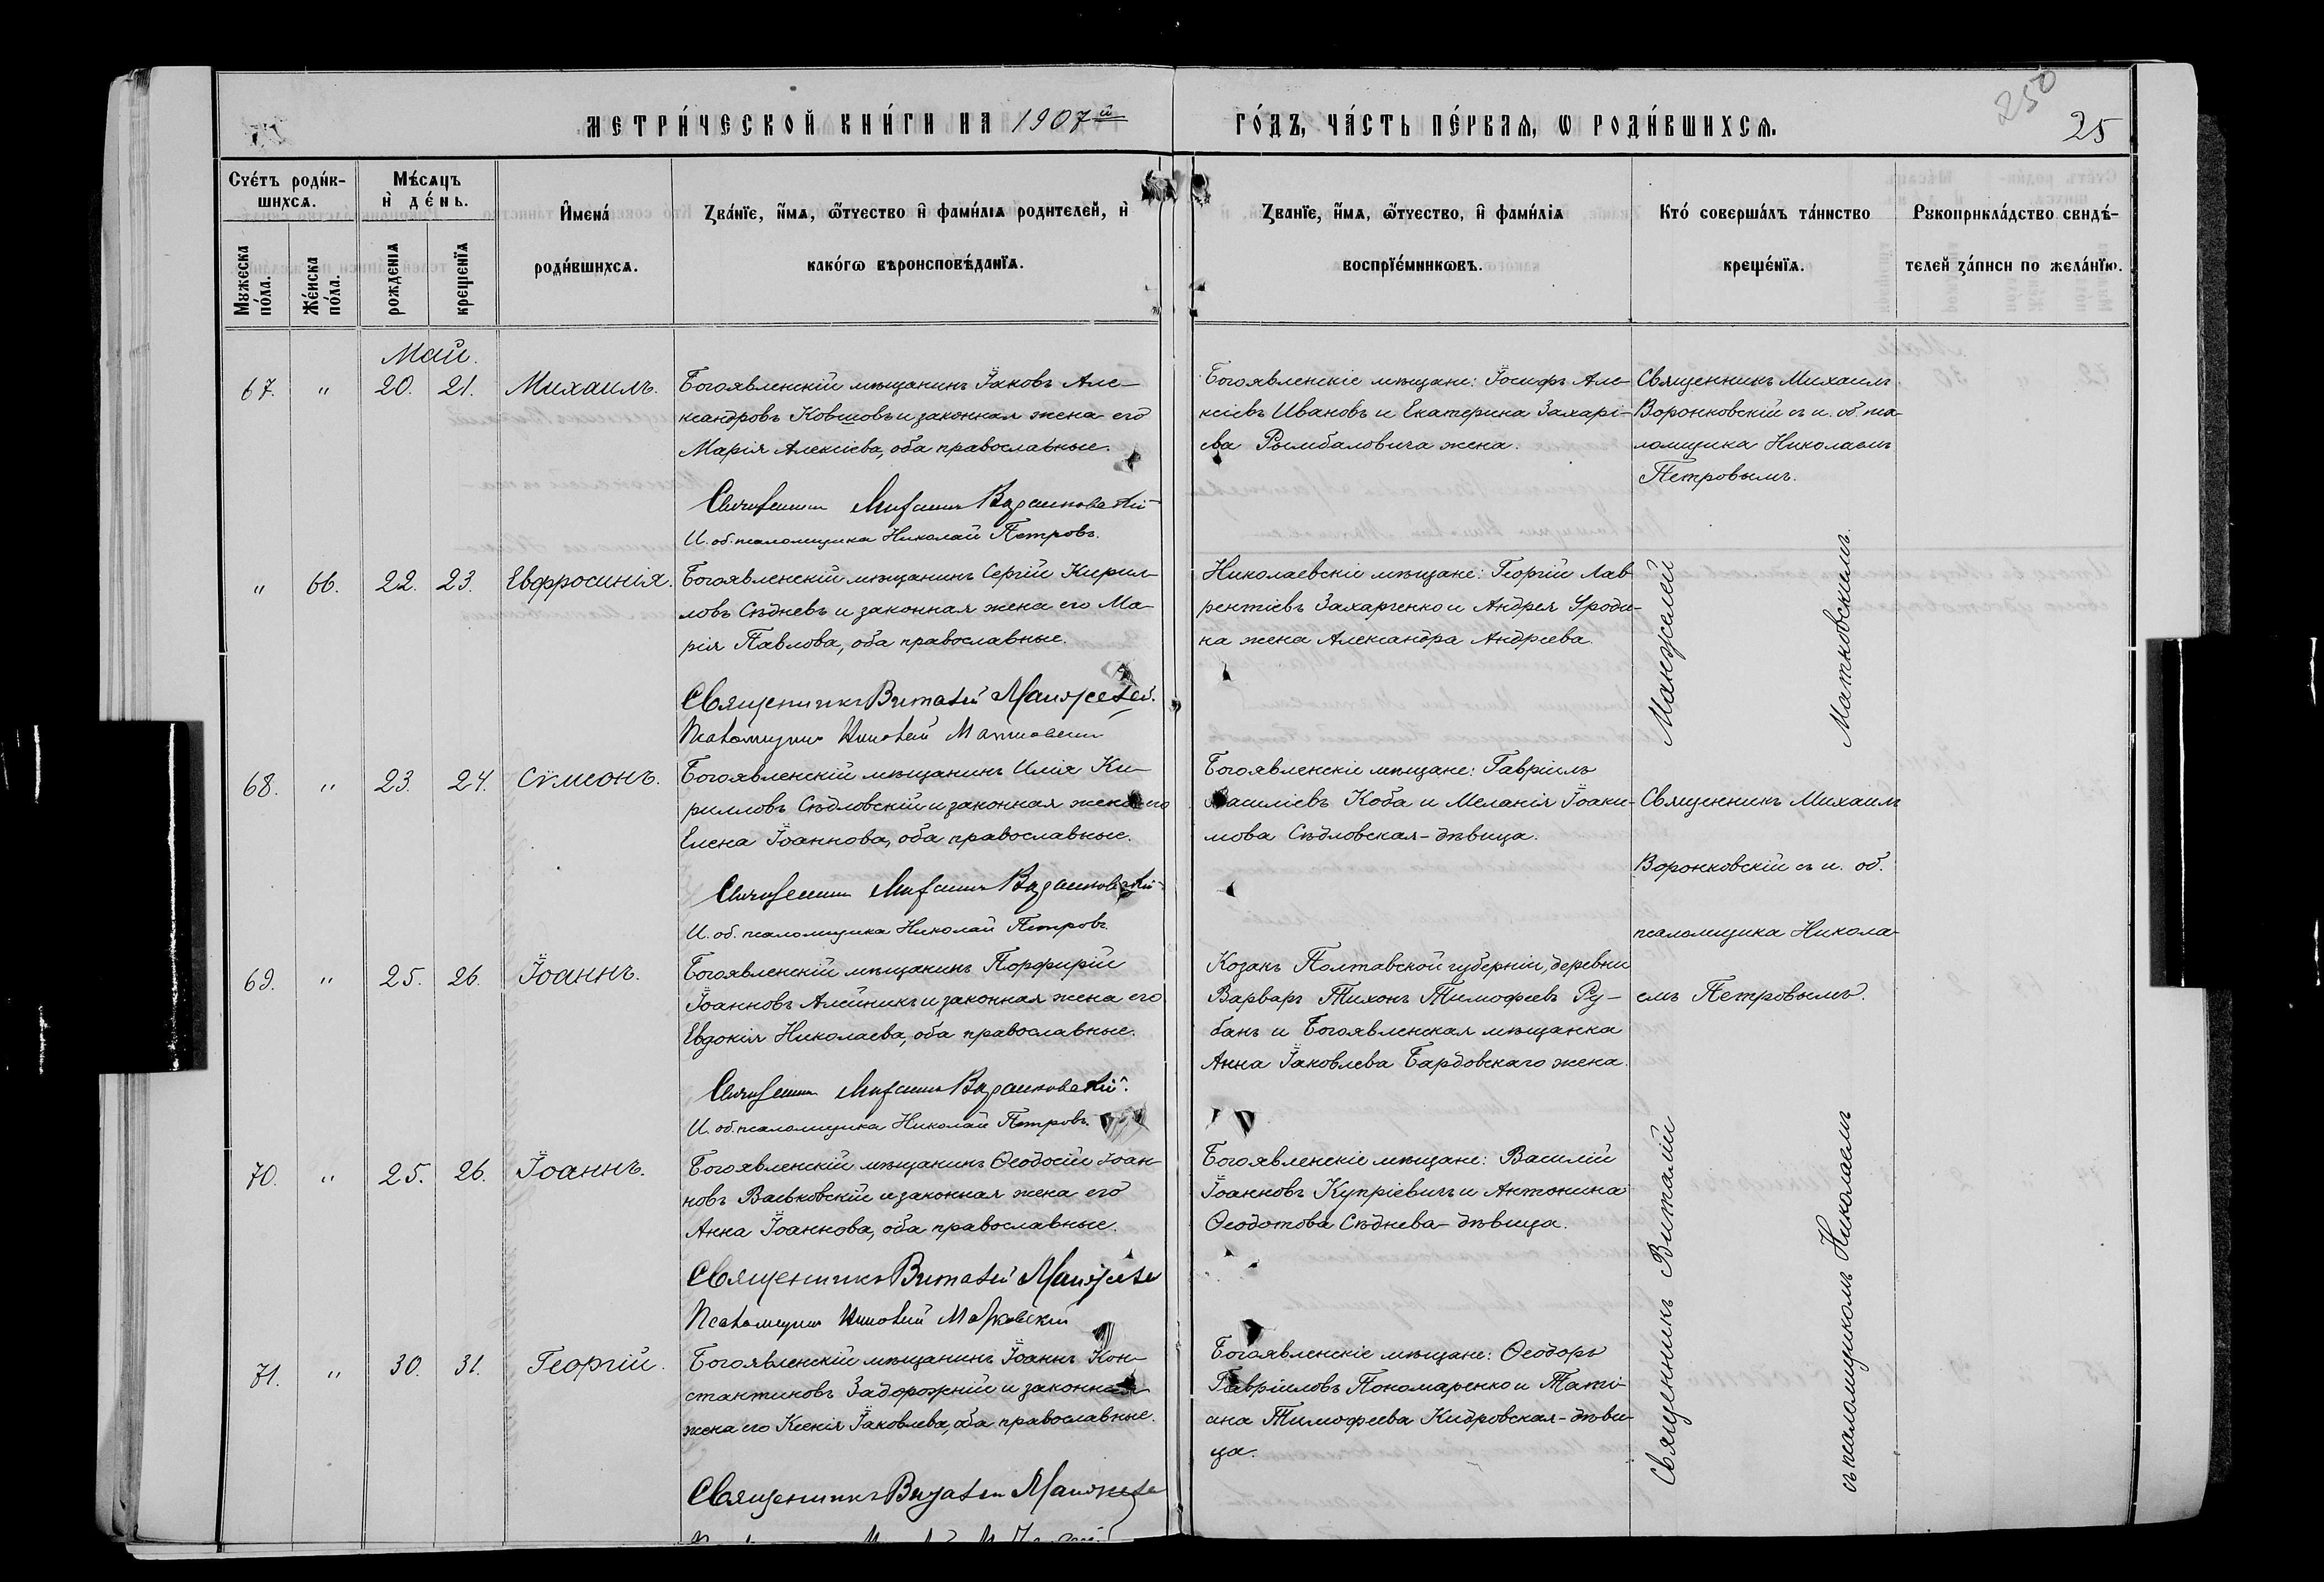 МЕТРИ́ЧЕСКОЙ КНИ́ГИ НА 1907й
ГО́ДЪ, ЧА́СТЬ ПЕ́РВАЯ, Ѡ РОДИ́ВШИХСѦ.
250
25
Сче́тъ роди́вшихсѧ.
Мѣ́сѧцъ
и҆ де́нь.
Мꙋжеска
по́ла.
Же́нска
по́ла.
рожденїѧ
крещенїѧ
И҆мена́
роди́вшихсѧ.
Зва́нїе, и҆́мѧ, ѻ҆́тчество и҆ фамилїѧ родителей, и҆
како́гѡ вѣроисповѣ́данїѧ.
Званїе, и҆́мѧ, ѻ҆́тчество, и҆ фами́лїѧ
воспрїе́мникѡвъ.
Кто́ соверша́лъ та́инство
креще́нїѧ.
Рꙋкоприкла́дство свидѣ́-
телей за́писи по жела́нїю.
Май.
67. " 20. 21. Михаилъ.
Богоявленскій мѣщанинъ Іаковъ Але-
ксандровъ Ковшовъ и законная жена его
Марія Алексіева, оба православные.
Священникъ Михаилъ Воронковскій
И. об. псаломщика Николай Петровъ.
Богоявленскіе мѣщане: Іосифъ Але-
ксіевъ Ивановъ и Екатерина Захарі-
ева Рымбаловича жена.
Священникъ Михаилъ
Воронковскій съ и. об. пса-
ломщика Николаемъ
Петровымъ.
" 66. 22. 23. Евфросинія.
Богоявленскій мѣщанинъ Сергій Кирил-
ловъ Сѣдневъ и законная жена его Ма-
рія Павлова, оба православные.
Священникъ Виталій Манжелей.
Псаломщикъ Николай Матковскій
Николаевскіе мѣщане: Георгій Лав-
рентіевъ Захарченко и Андрея Уроди-
на жена Александра Андреева.
68. " 23. 24. Сѵмеонъ.
Богоявленскій мѣщанинъ Илія Ки-
рилловъ Сѣдловскій и законная жена его
Елена Іоаннова, оба православные.
Священникъ Михаилъ Воронковскій
И. об. псаломщика Николай Петровъ.
Богоявленскіе мѣщане: Гавріилъ
Василіевъ Коба и Меланія Іоаки-
мова Сѣдловская-дѣвица.
Священникъ Михаилъ
Воронковскій съ и. об.
псаломщика Никола-
емъ Петровымъ.
69. " 25. 26. Іоаннъ.
Богоявленскій мѣщанинъ Порфирій
Іоанновъ Алейникъ и законная жена его
Евдокія Николаева, оба православные.
Священникъ Михаилъ Воронковскій.
И. об. псаломщика Николай Петровъ.
Козакъ Полтавской губерніи, деревни
Варваръ Тихонъ Тимофеевъ Ру-
банъ и Богоявленская мѣщанка
Анна Іаковлева Бардовскаго жена.
70. " 25. 26. Іоаннъ.
Богоявленскій мѣщанинъ Ѳеодосій Іоан-
новъ Васьковскій и законная жена его
Анна Іоаннова, оба православные.
Священникъ Виталій Манжелей
Псаломщикъ Николай Матковскій
Богоявленскіе мѣщане: Василій
Іоанновъ Купріевичъ и Антонина
Ѳеодотова Сѣднева-дѣвица.
71. " 30. 31. Георгій.
Богоявленскій мѣщанинъ Іоаннъ Кон-
стантиновъ Задорожній и законная
жена его Ксенія Іаковлева, оба православные.
Священникъ Виталій Манжелей
Богоявленскіе мѣщане: Ѳеодоръ
Гавріиловъ Пономаренко и Тати-
ана Тимофеева Кидровская-дѣви-
ца.
Священникъ Виталій Манжелей
съ псаломщикомъ Николаемъ Матковскимъ.